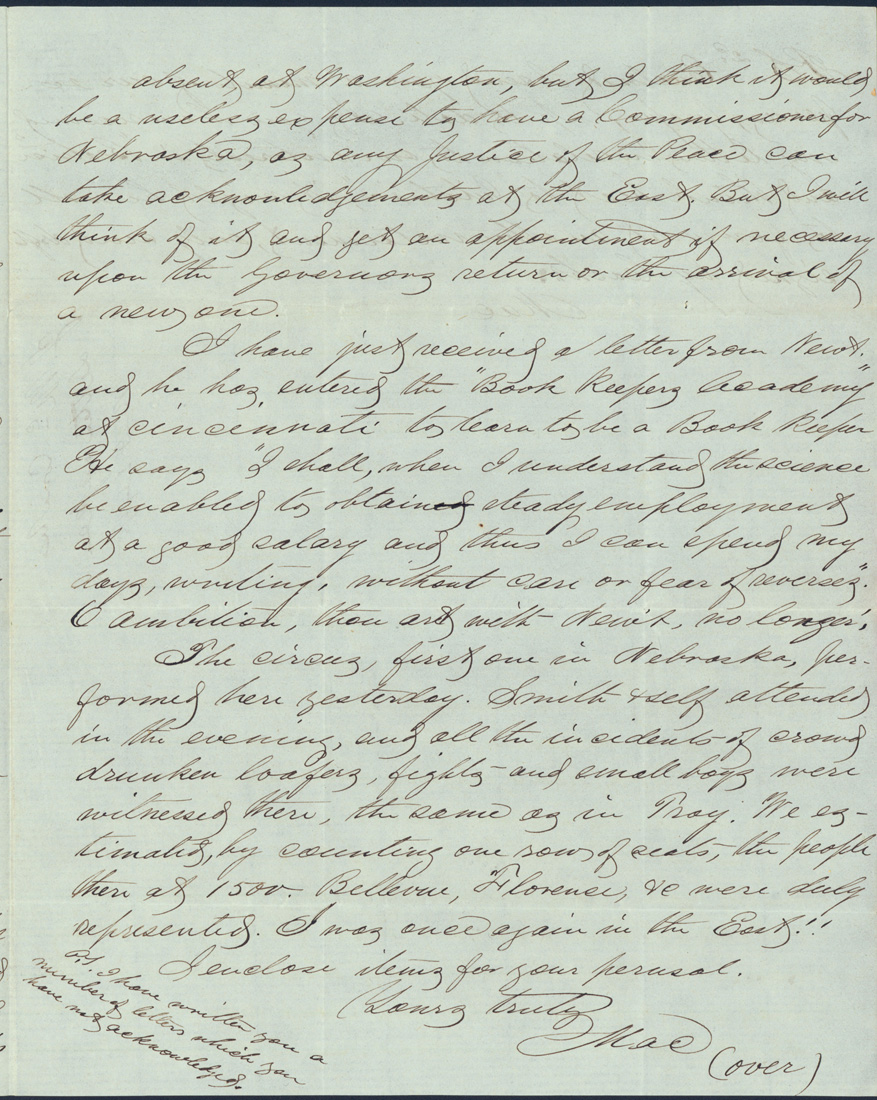 absent at Washington, but I think it would
be a useless expense to have a Commissioner for
Nebraska, as any Justice of the Peace can
take acknowledgements at the East. But I will
think of it and get an appointment if necessary
upon the Governors return or the arrival of
a new one.
I have just received a letter from Newt.
and he has entered the "Book Keepers Academy"
at Cincinnati to learn to be a Book Keeper
He says "I shall, when I understand the science
be enabled to obtained steady employment
at a good salary and thus I can spend my
days, writing, without care or fear of reverses".
O ambition, thou art with Newt, no longer!
The circus, first one in Nebraska, per-
formed here yesterday. Smith & self attended
in the evening, and all the incidents of crowd
drunken loafers, fights and small boys were
witnessed there, the same as in Troy. We es-
timated, by counting one row of seats, the people
there at 1500. Bellevue, Florence, &c were duly
represented. I was once again in the East!!
I enclose items for your perusal.
Yours truly
Mac
(over)
P.S. I have written you a
number of letters which you
have not acknowledged.